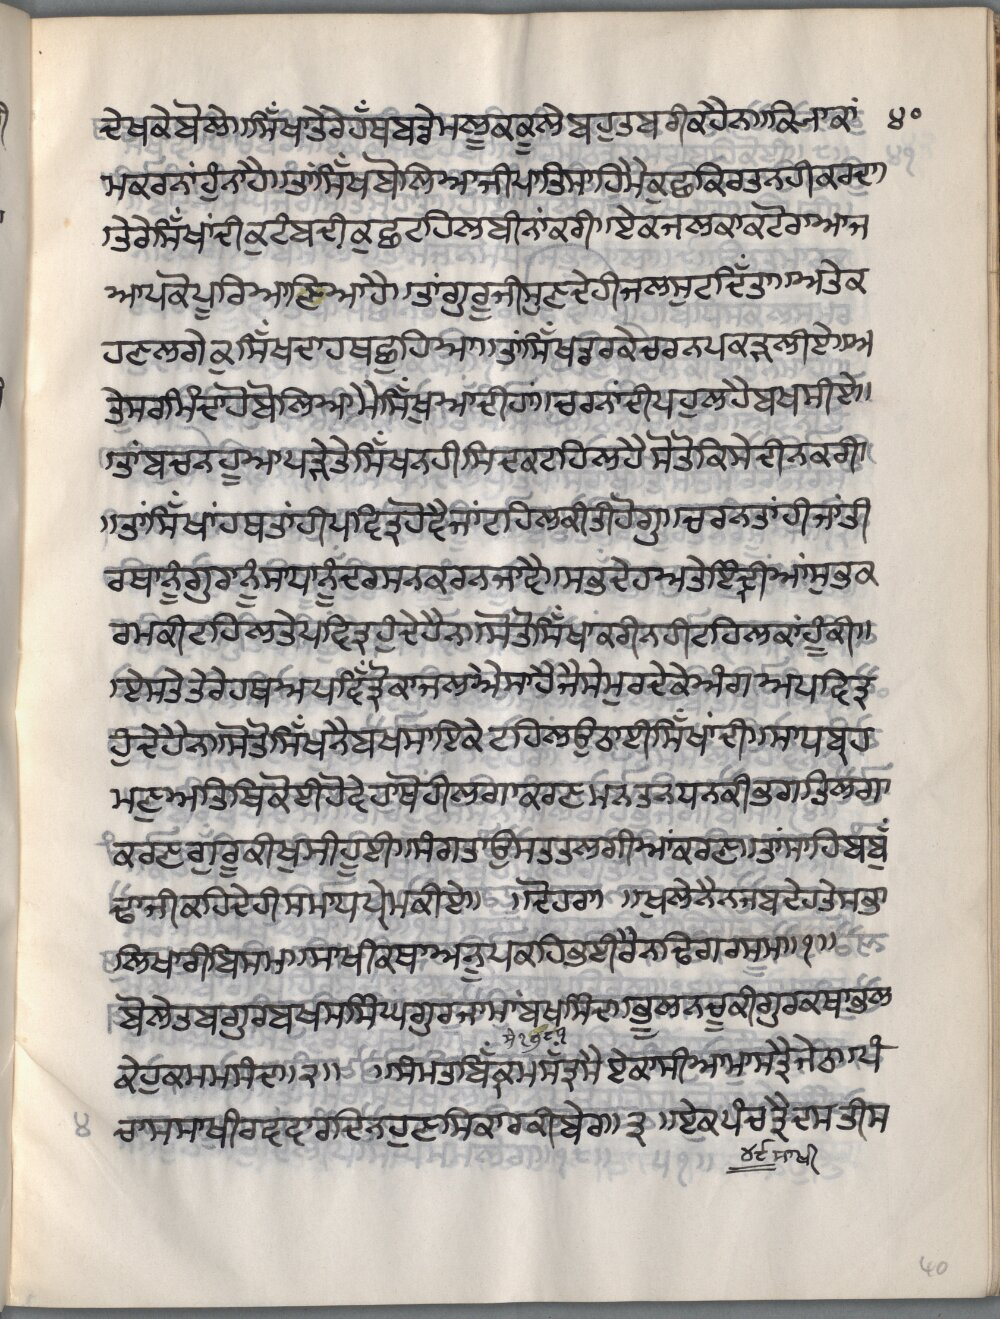 ਦੇਖਕੇਬੋਲੇ॥ਸਿੱਖਾਤੇਰੇਹੱਥਬਡੇਮਲੂਕਕੂਲੇਬਹੁਤਬਰੀਕਹੈਨ॥ਕਿਆਕਾਂ ੪੦
ਮਕਰਨਾਂਹੁੰਨਾਂਹੈ॥ਤਾਂਸਿੱਖਬੋਲਿਆਜੀਪਾਤਿਸਾਹਿਮੈਕੁਛਕਿਰਤਨਹੀਕਰਦਾ
॥ਤੇਰੇਸਿੱਖਾਂਦੀਕੁਟੰਬਦੀਕੁਛਟਹਿਲਬੀਨਾਂਕਰੀ॥ਏਕਜਲਕਾਕਟੋਰਾਆਜ
ਆਪਕੋਪੂਰਿਆਲਿਆਹੈ॥ਤਾਂਗੁਰੂਜੀਸੁਣਦੇਹੀਜਲਸੁਟਦਿੱਤਾ॥ਅਤੇਕ
ਹਣਲਗੇਕੁਸਿੱਖਦਾਹਥਛੁਹਿਆ॥ਤਾਂਸਿੱਖਡਰਕੇਚਰਨਪਕੜਲੀਏ॥ਅ
ਤੇਸਰਮਿੰਦਾਹੋਬੋਲਿਆਮੈਸਿੱਖੁਆਂਦੀਹਾਂ॥ਚਰਨਾਂਦੀਪਹੁਲਹੈਬਖਸੀਏ॥
॥ਤਾਂਬਚਨਹੂਆਪੜੇਤੇਸਿੱਖਨਹੀਸਿਦਕਟਹਿਲਹੈਸੋਤੋਕਿਸੇਦੀਨਕਰੀ
॥ਤਾਂਸਿੱਖਾਂਹਥਤਾਂਹੀਪਵਿਤ੍ਰਹੋਂਦੈਜਾਂਟਹਿਲਕੀਤੀਹੋਗੁ॥ਚਰਨਤਾਂਹੀਜਾਂਤੀ
ਰਥਾਨੂੰਗੁਰਾਨੂੰਸਾਧਾਨੂੰਦਰਸਨਕਰਨਜਾਂਦੈ॥ਸਭਦੇਹਅਤੇਇੰਦ੍ਰੀਆਂਸੁਭਕ
ਰਮਕੀਟਹਿਲਤੇਪਵਿਤ੍ਰਹੁੰਦੇਹੈਨ॥ਸੋਤੋਸਿੱਖਾਕਰੀਨਹੀਟਹਿਲਕਾਂਹੂੰਕੀ॥
॥ਏਸਤੇਤੇਰੇਹਥਅਪਵਿੱਤ੍ਰੋਕਾਜਲਐਸਾਹੈਜੈਸੇਮੁਰਦੇਕੇਅੰਗਅਪਵਿਤ੍ਰ
ਹੁੰਦੇਹੈਨ॥ਸੋਤੋਸਿੱਖਨੈਬਖਸਾਇਕੈਟਹਿਲਉਠਾਈਸਿੱਖਾਂਦੀ॥ਸਾਧਬ੍ਰਹ
ਮਣਅਤਿਥਿਕੋਈਹੋਵੇਹਾਥੋਂਹੀਲਗਾਕਰਣਮਨਤਨਧਨਕੀਭਗਤਿਲਗਾ
ਕਰਣਗੁਰੂਕੀਖੁਸੀਹੂਈ॥ਸੰਗਤਾਂਉਸਤਤਲਗੀਆਂਕਰਣ॥ਤਾਂਸਾਹਿਬਬੁੱ
ਢਾਜੀਕਹਿਦੇਹੀਸਮਾਧਪੇਮਕੀਏ॥ ॥ਦੋਹਰਾ॥ ॥ਖੁਲੇਨੈਨਜਬਦੇਹਤੇਸਭਾ
ਲਿਖਾਰੀਬਿਸਮ॥ਸਾਖੀਕਥਾਅਨੂਪਕਹਿਭਈਰੈਨਢਿਗਰਸੂਮ॥੧॥
ਬੋਲੇਤਬਗੁਰਬਖਸਸਿੰਘਗੁਰਆਸਾਂਬਖਸਿੰਦਾ॥ਭੂਲਨਚੂਕੀਗੁਰਕਥਾਭਲ
ਸੰ੧੭੮੧
ਕੇਹੁਕਮਮਸੰਦ॥੨॥ ॥ਸੰਮਤਬਿੱਕ੍ਰਮਸੱਤ੍ਰਸੈਏਕਾਸੀਆਮਾਸਤ੍ਰੈਜੇਠ॥ਪੰ
ਚਾਸਸਾਖੀਰਵਦਾਰਦਿਨਹੁਣਸਿਕਾਰਕੀਖੇਰ॥੩॥ਏਕਪੰਚਤ੍ਰੈਦਸਤੀਸ
੪੮ਸਾਖੀ
40